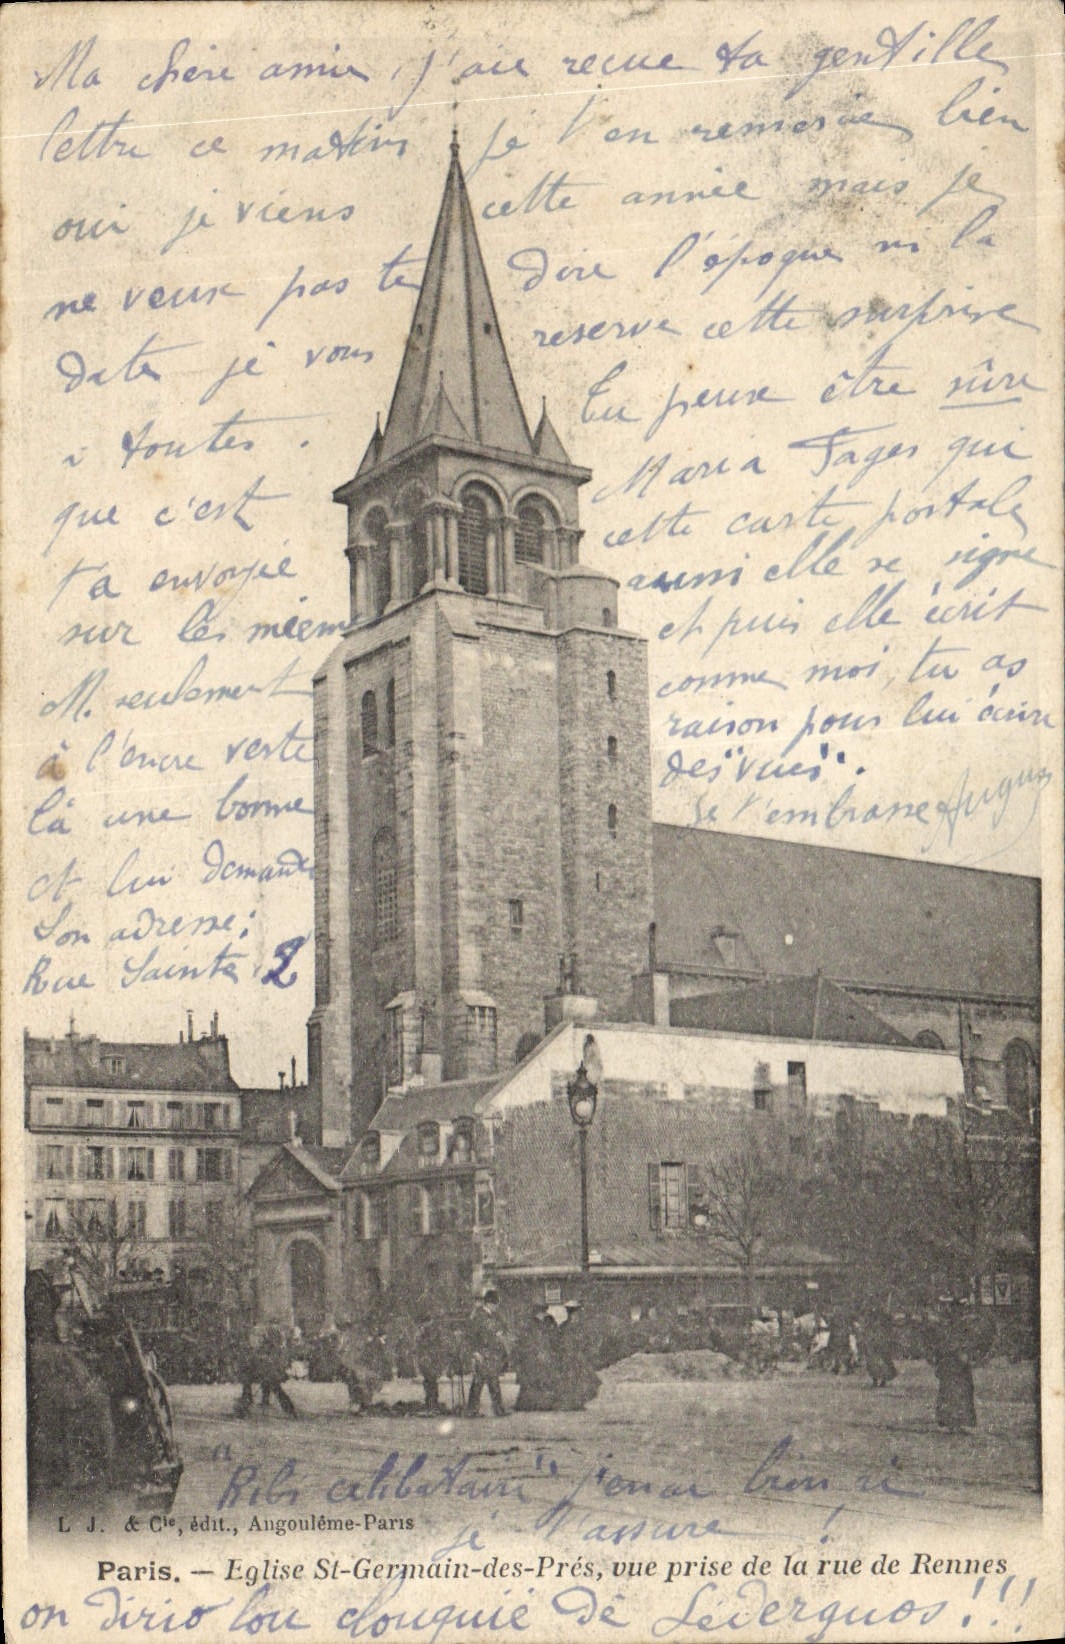 Ma chère amie, j'aie reçue ta gentille
lettre ce matin je t'en remercie bien
oui je viens cette année mais je
ne veux pas te dire l'époque ni la
date je vous reserve cette surprise
à toutes. Tu peux être sûre
que c'est Maria Fages qui
t'a envoyée cette carte postale
sur les mieme aussi elle se signe
M. seulement et puis elle écrit
à l'encre verte comme moi, tu as
là une bonne raison pour lui écrire
et lui demander des "vues".
Son adresse: Je t'embrasse
Rue Sainte 2
"Ribi celibataire" j'en ai bien ri
je t'assure !
L. J. & Cie, édit., Angoulême-Paris
Paris. — Eglise St-Germain-des-Prés, vue prise de la rue de Rennes
on dirio lou de !!!